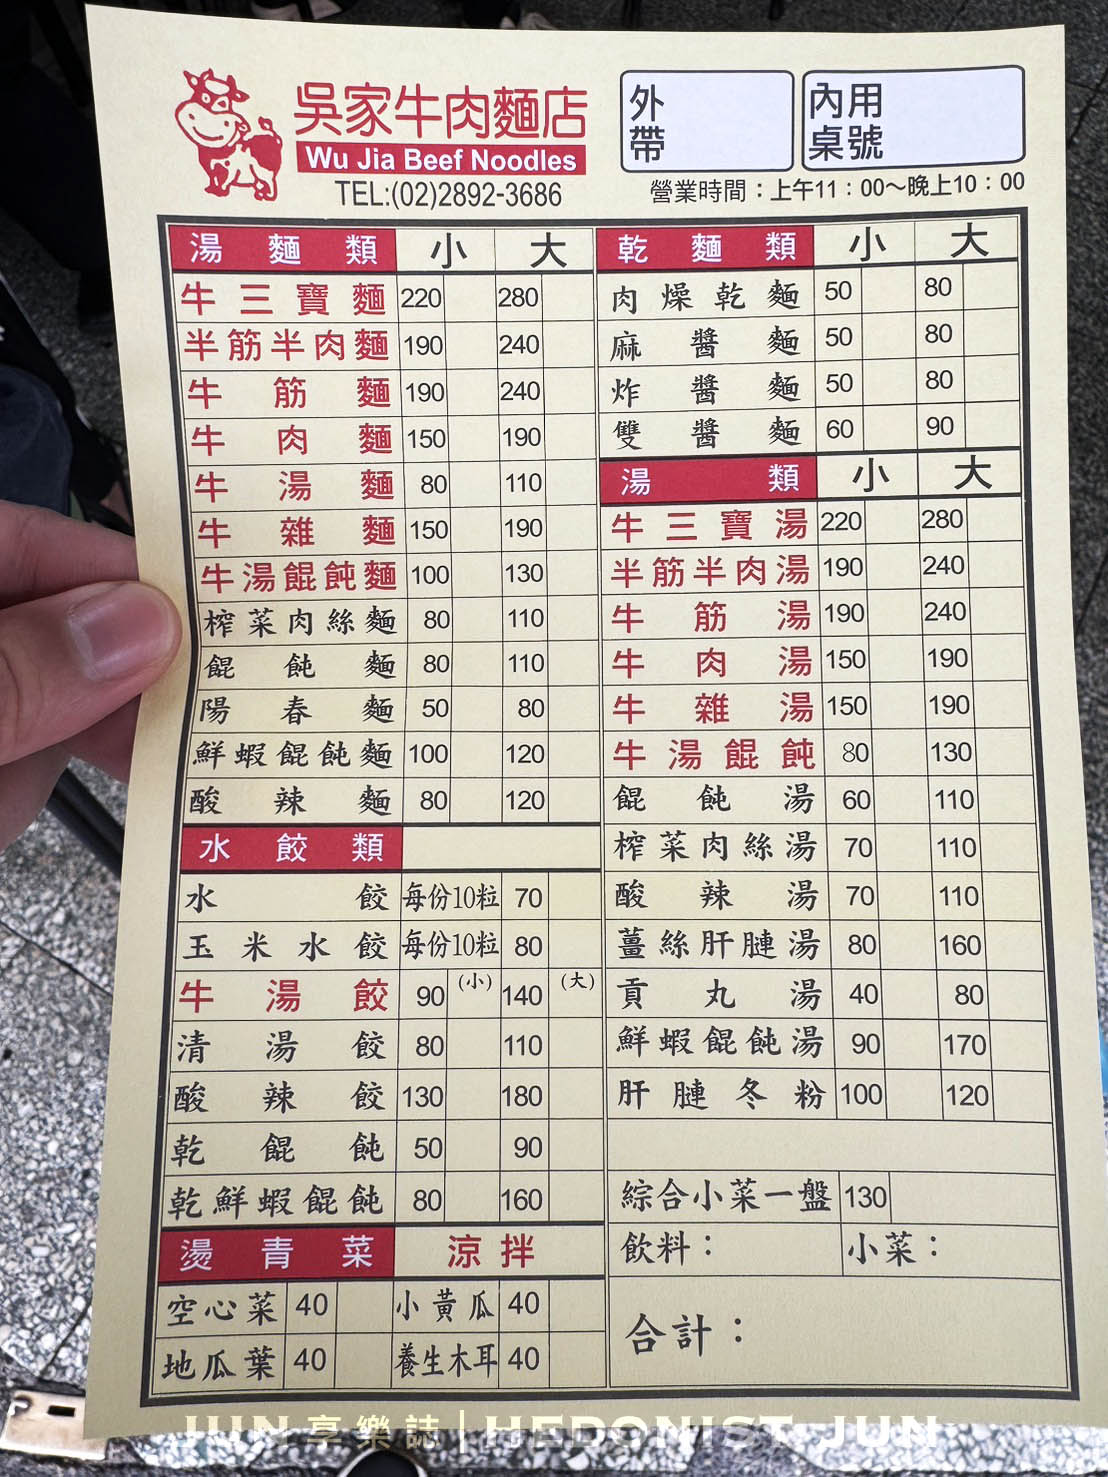 吳家牛肉麵店
Wu Jia Beef Noodles
TEL:(02)2892-3686
外帶
內用桌號
營業時間：上午11：00～晚上10：00
湯麵類 小 大
牛三寶麵 220 280
半筋半肉麵 190 240
牛筋麵 190 240
牛肉麵 150 190
牛湯麵 80 110
牛雜麵 150 190
牛湯餛飩麵 100 130
榨菜肉絲麵 80 110
餛飩麵 80 110
陽春麵 50 80
鮮蝦餛飩麵 100 120
酸辣麵 80 120
水餃類
水餃 每份10粒 70
玉米水餃 每份10粒 80
牛湯餃 90 (小) 140 (大)
清湯餃 80 110
酸辣餃 130 180
乾餛飩 50 90
乾鮮蝦餛飩 80 160
燙青菜 涼拌
空心菜 40 小黃瓜 40
地瓜葉 40 養生木耳 40
乾麵類 小 大
肉燥乾麵 50 80
麻醬麵 50 80
炸醬麵 50 80
雙醬麵 60 90
湯類 小 大
牛三寶湯 220 280
半筋半肉湯 190 240
牛筋湯 190 240
牛肉湯 150 190
牛雜湯 150 190
牛湯餛飩 80 130
餛飩湯 60 110
榨菜肉絲湯 70 110
酸辣湯 70 110
薑絲肝腱湯 80 160
貢丸湯 40 80
鮮蝦餛飩湯 90 170
肝腱冬粉 100 120
綜合小菜一盤 130
飲料： 小菜：
合計：
JUN 享樂誌 | HEDONIST JUN